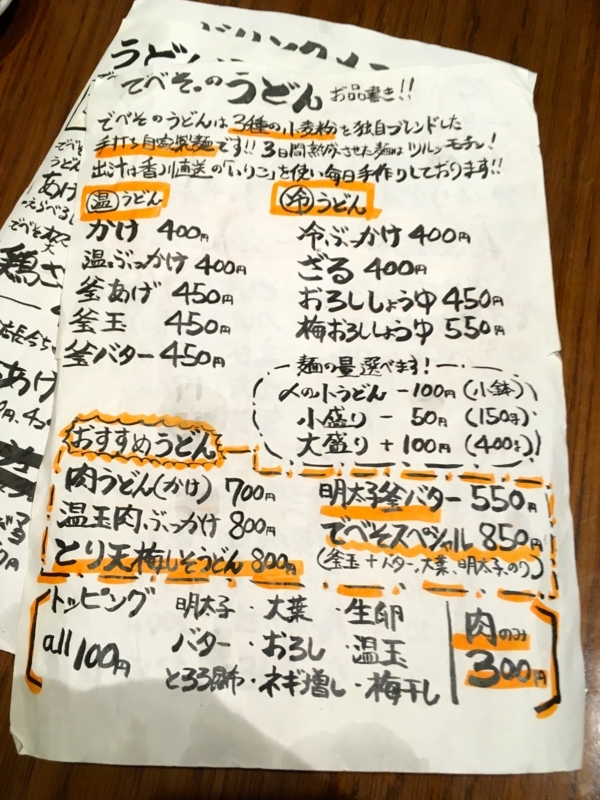 でべその うどん お品書き!!
でべそのうどんは3種の小麦粉を独自ブレンドした
手打ち自家製麺です!! 3日間熟成させた麺はツルッモチッ!
出汁は香川直送の「いりこ」を使い毎日手作りしております!!
温うどん
かけ 400円
温ぶっかけ 400円
釜あげ 450円
釜玉 450円
釜バター 450円
冷うどん
冷ぶっかけ 400円
ざる 400円
おろししょうゆ 450円
梅おろししょうゆ 550円
麺の量選べます!
〆の小うどん -100円 (小鉢)
小盛り - 50円 (150g)
大盛り + 100円 (400g)
おすすめうどん
肉うどん(かけ) 700円
温玉肉ぶっかけ 800円
とり天梅しそうどん 800円
明太子釜バター 550円
でべそスペシャル 850円
(釜玉+バター、大葉、明太子、のり)
トッピング
all 100円
明太子・大葉・生卵
バター・おろし・温玉
とろろ昆布・ネギ増し・梅干し
肉のみ
300円
うどん